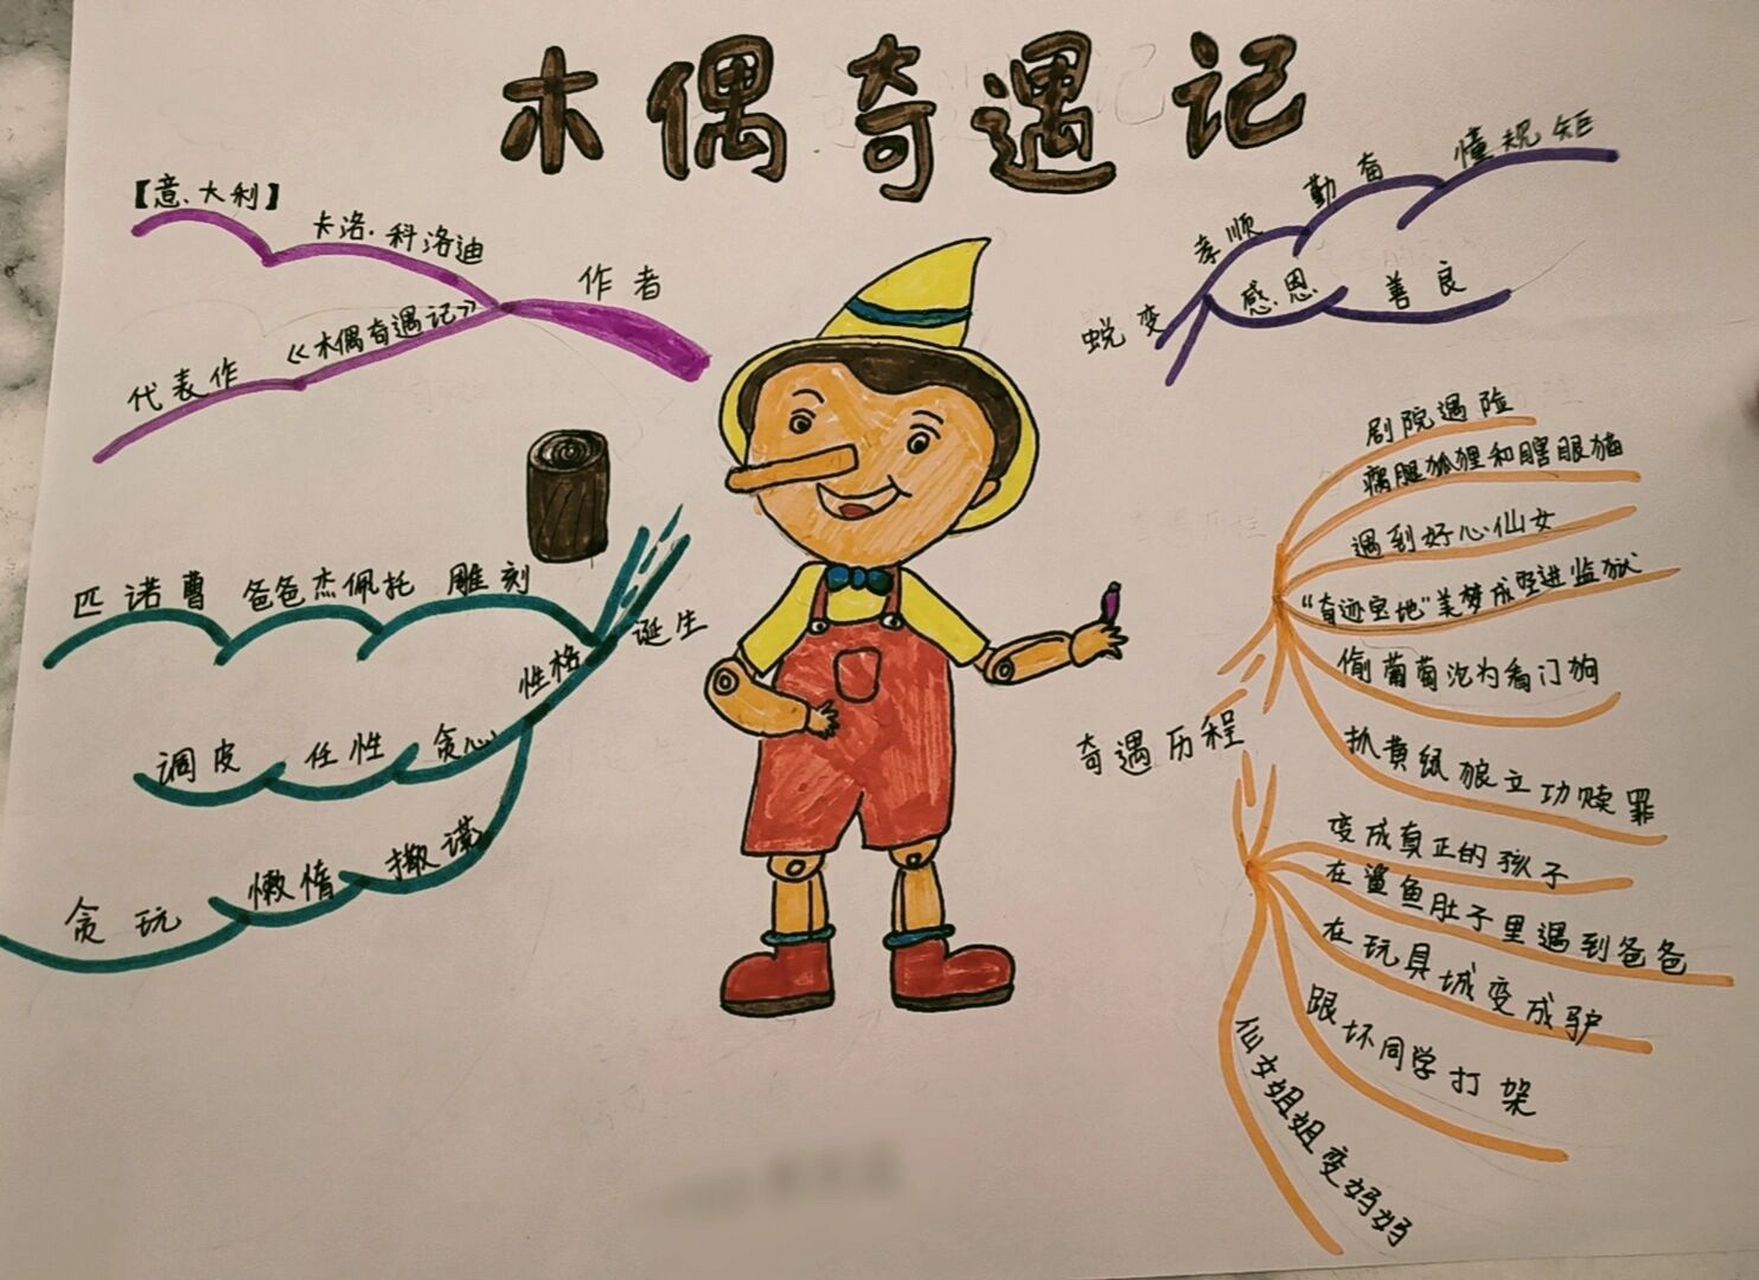 木偶奇遇记
【意大利】
卡洛·科洛迪
作者
《木偶奇遇记》
代表作
匹诺曹 爸爸杰佩托 雕刻
诞生
性格
调皮 任性 贪心
贪玩 懒惰 撒谎
蜕变
孝顺 勤奋 懂规矩
感恩 善良
奇遇历程
剧院遇险
瘸腿狐狸和瞎眼猫
遇到好心仙女
“奇迹宝地”美梦成空进监狱
偷葡萄沦为看门狗
抓黄鼠狼立功赎罪
变成真正的孩子
在鲨鱼肚子里遇到爸爸
在玩具城变成驴
跟坏同学打架
仙女姐姐变妈妈